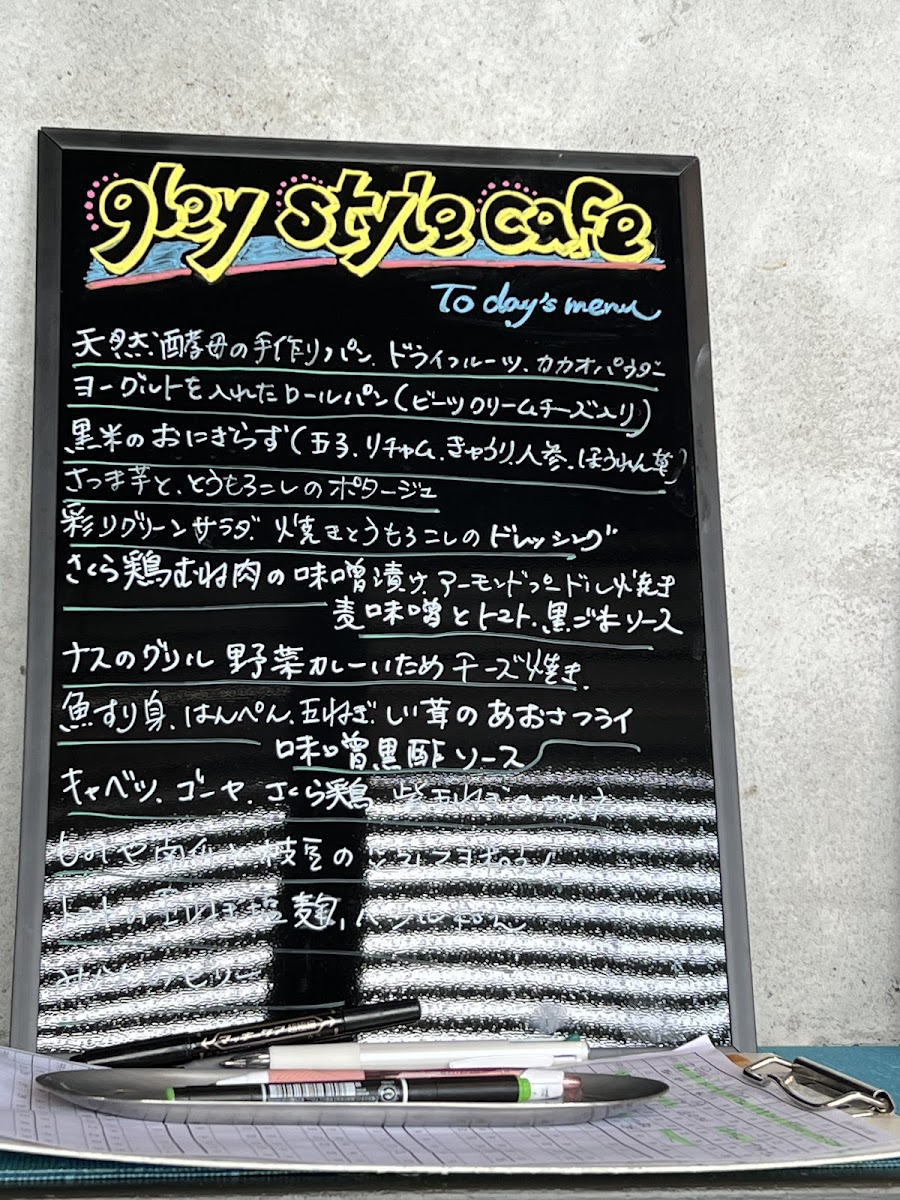 gley style cafe
To day's menu
天然酵母の手作りパン、ドライフルーツ、カカオパウダー
ヨーグルトを入れたロールパン(ビーツクリームチーズ入り)
黒米のおにぎらず(玉子、リチャム、きゅうり、人参、ほうれん草)
さつま芋と、とうもろこしのポタージュ
彩りグリーンサラダ 焼きとうもろこしのドレッシング
さくら鶏むね肉の味噌漬け、アーモンドプードル焼き
麦味噌とトマト、黒ごまソース
ナスのグリル 野菜カレーいため チーズ焼き
魚すり身、はんぺん、玉ねぎ、しい茸のあおさフライ
味噌黒酢ソース
キャベツ、ゴーヤ、さくら鶏、紫玉ねぎの
もみや
枝豆の
玉ねぎ塩麹、
マッキー